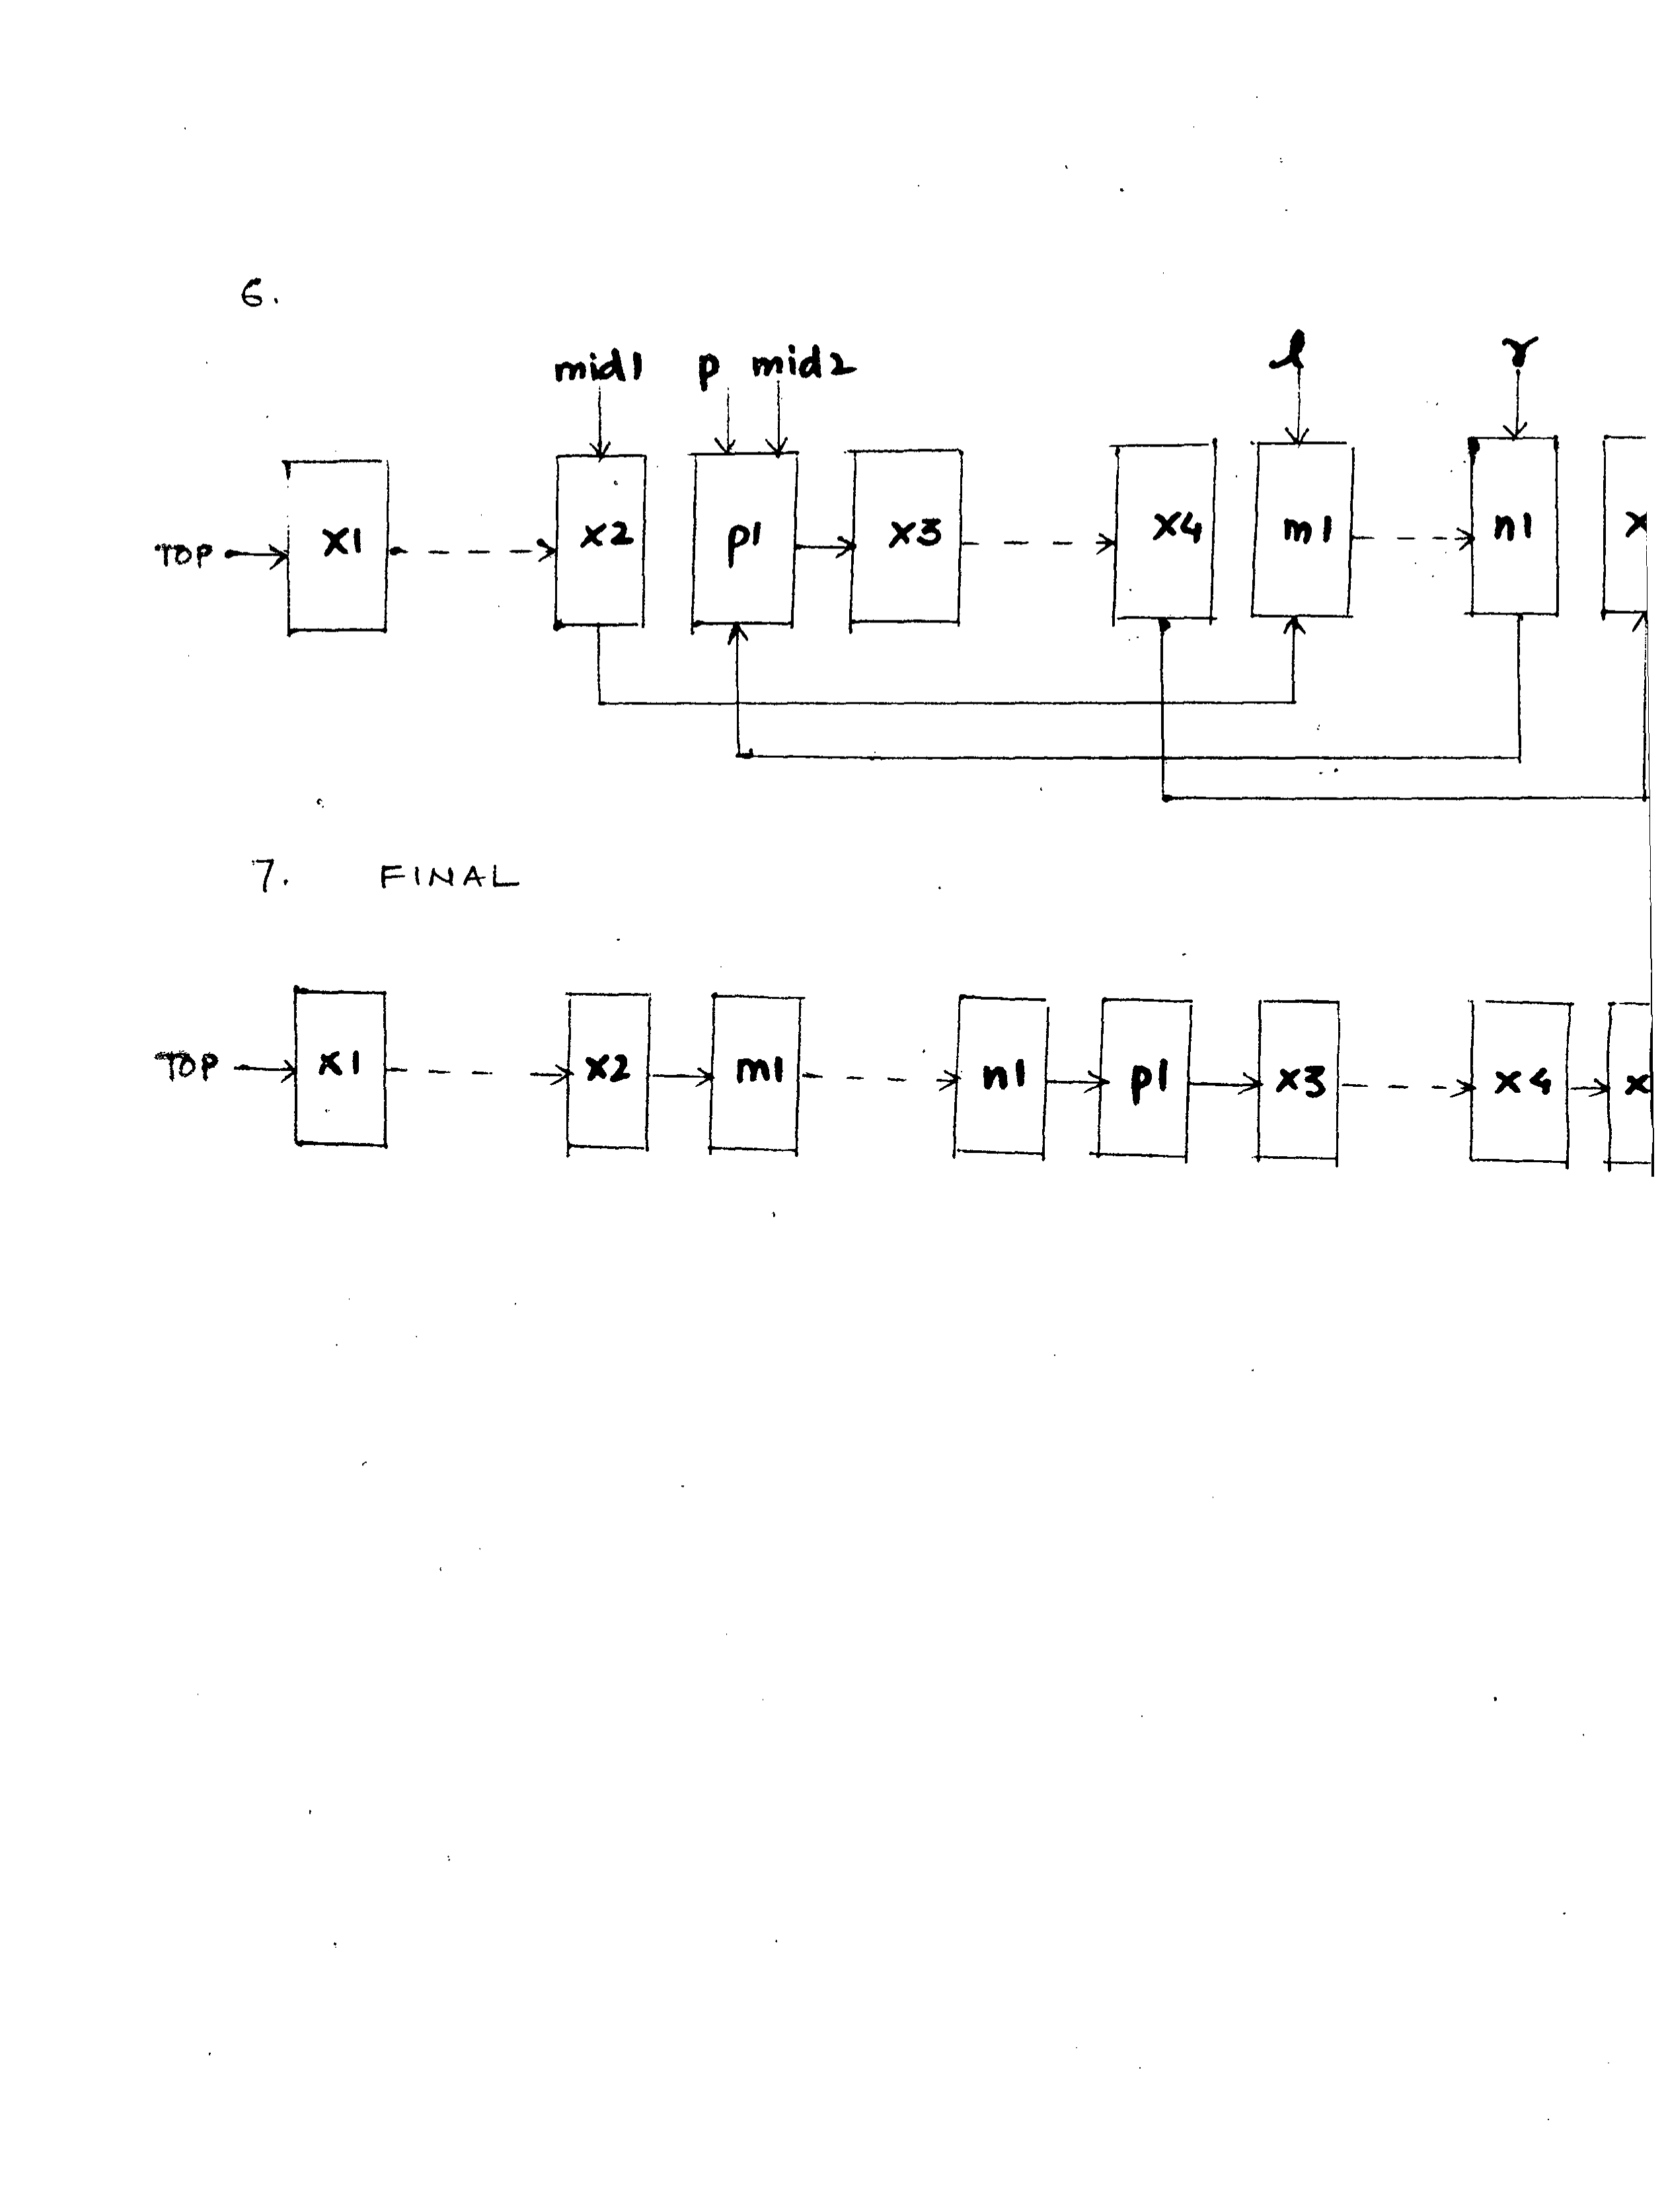 6.
mid1 p mid2 l r
TOP x1 x2 p1 x3 x4 m1 n1 x
7. FINAL
TOP x1 x2 m1 n1 p1 x3 x4 x